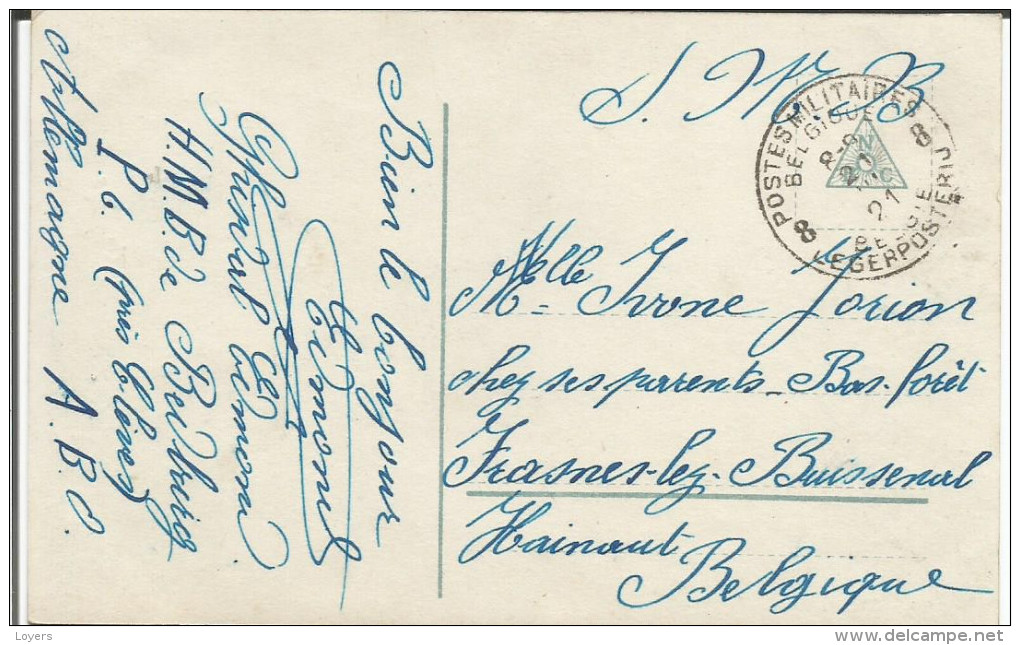 S. M. B
POSTES MILITAIRES
BELGIQUE
8
8
21
BELGIE
LEGERPOSTERIJ
N
C
Melle Ivone Jorion
chez ses parents - Bas-forêt
Frasnes-lez-Buissenal
Hainaut
Belgique
Bien le bonjour
Edmond
H.M.B. de Bedburg
P. C. (près Clèves)
Allemagne A. B. O.
Loyers
delcampe.net